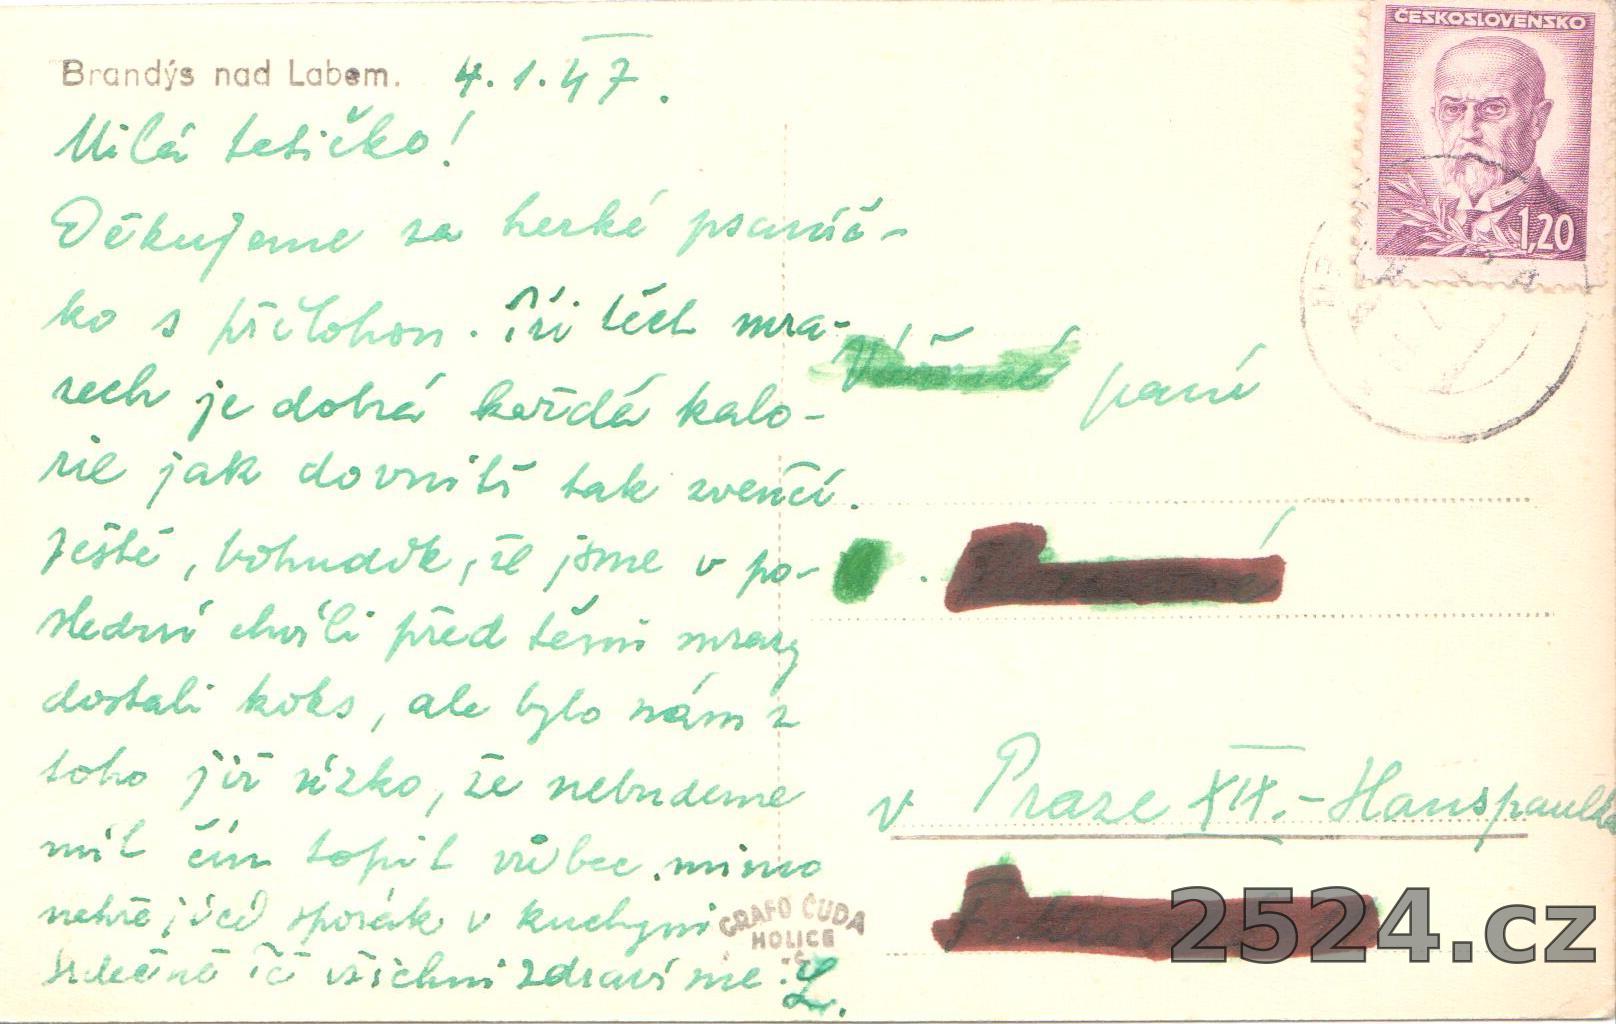 Brandýs nad Labem. 4.1.47.
Milá tetičko!
Děkujeme za hezké psaníč-
ko s přílohou. Při těch mra-
zech je dobrá každá kalo-
rie jak dovnitř tak zvenčí.
Ještě, bohudík, že jsme v po-
slední chvíli před těmi mrazy
dostali koks, ale bylo nám z
toho již úzko, že nebudeme
mít čím topit vůbec mimo
nehřející sporák v kuchyni
Srdečně Tě všichni zdravíme. L.
ČESKOSLOVENSKO
1,20
Vážená paní
v Praze XIX.-Hanspaulka
GRAFO ČUDA
HOLICE
2524.cz